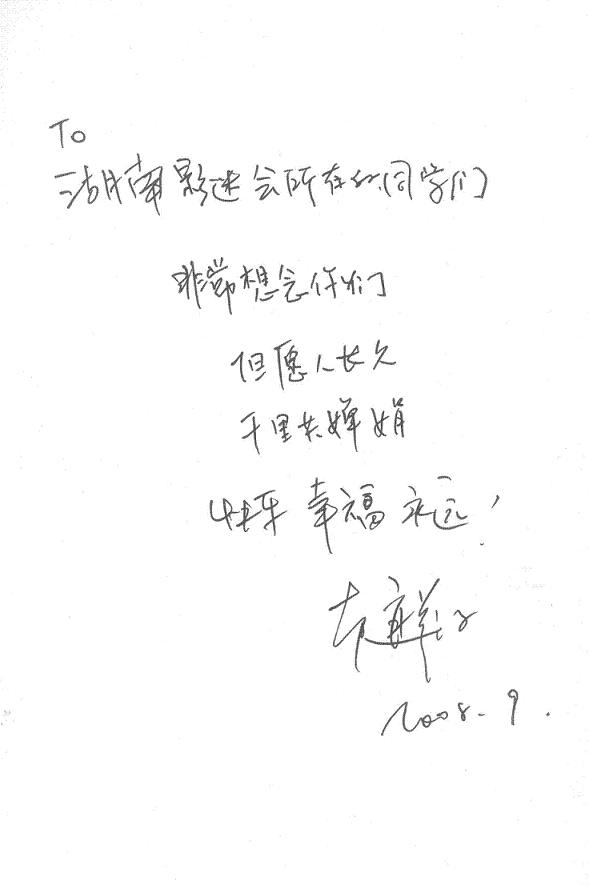 To
湖南影迷会所有的同学们
非常想念你们
但愿人长久
千里共婵娟
快乐 幸福 永远!
2008.9.